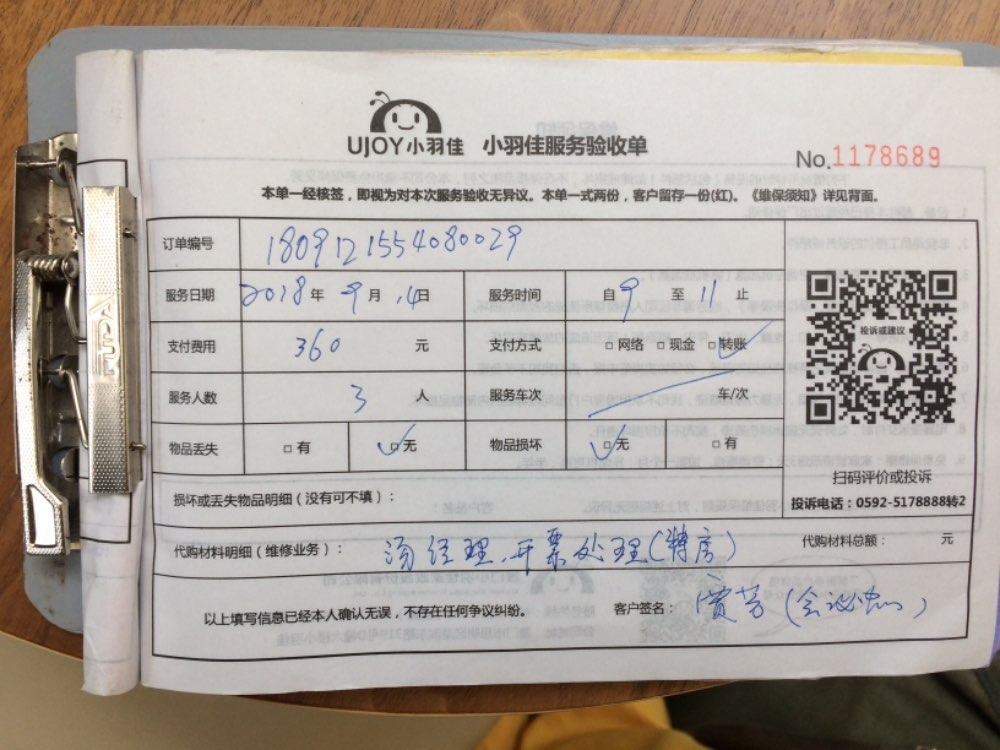 UJOY小羽佳 小羽佳服务验收单
No.1178689
本单一经核签，即视为对本次服务验收无异议。本单一式两份，客户留存一份(红)。《维保须知》详见背面。
订单编号 1809121554080029
服务日期 2018年9月14日 服务时间 自9至11止
支付费用 360元 支付方式 □网络 □现金 □转账
服务人数 3人 服务车次 车/次
物品丢失 □有 □无 物品损坏 □无 □有
投诉或建议
扫码评价或投诉
损坏或丢失物品明细（没有可不填）：
投诉电话：0592-5178888转2
代购材料明细（维修业务）： 汤经理.开票处理(特房) 代购材料总额： 元
以上填写信息已经本人确认无误，不存在任何争议纠纷。 客户签名： 贾芳(会议中心)